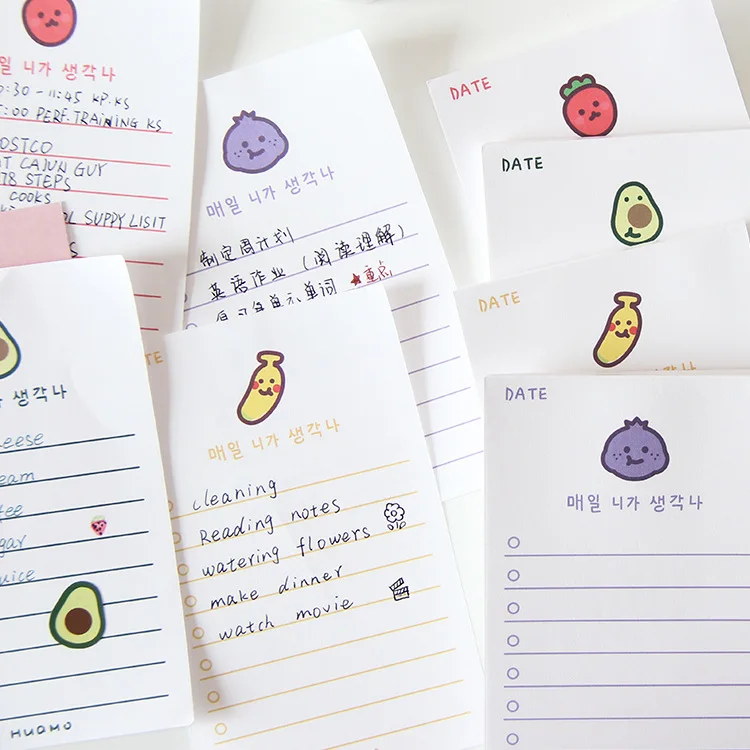 매일 니가 생각나
:30 - 11:45 KP.KS
:00 PERF.TRAINING KS
COSTCO
AT CAJUN GUY
78 STEPS
COOKS
SUPPY LISIT
매일 니가 생각나
制定周计划
英语作业 (阅读理解)
复习各单示单词 ★重点
DATE
DATE
DATE
DATE
매일 니가 생각나
생각나
cheese
ream
fee
gar
juice
HUAMO
매일 니가 생각나
cleaning
Reading notes
watering flowers
make dinner
watch movie